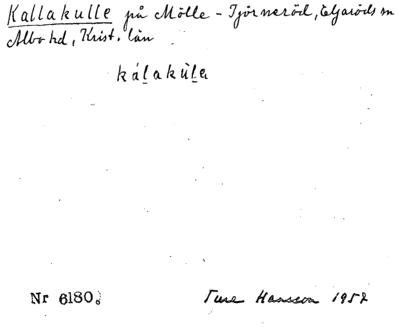 Kallakulle på Mölle - Tjörneröd, Eljaröds sn
Albo hd, Krist. län
kálakùla
Nr 6180.
Ture Hansson 1952